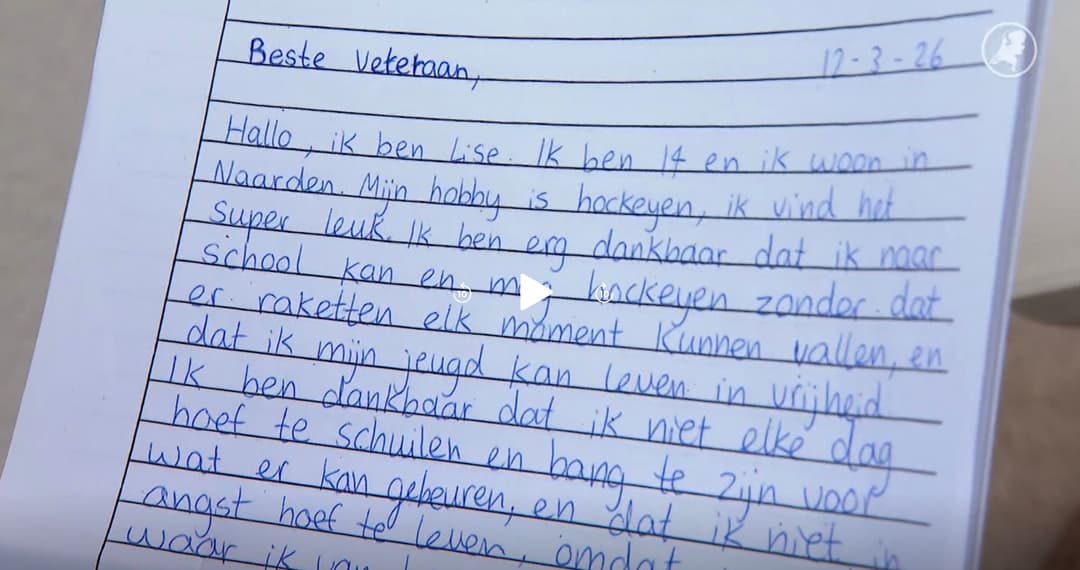 Beste Veteraan, 12-3-26
Hallo, ik ben Lise. Ik ben 14 en ik woon in
Naarden. Mijn hobby is hockeyen, ik vind het
super leuk. Ik ben erg dankbaar dat ik naar
school kan en mag hockeyen zonder dat
er raketten elk moment kunnen vallen, en
dat ik mijn jeugd kan leven in vrijheid
Ik ben dankbaar dat ik niet elke dag
hoef te schuilen en bang te zijn voor
wat er kan gebeuren, en dat ik niet in
angst hoef te leven, omdat
waar ik